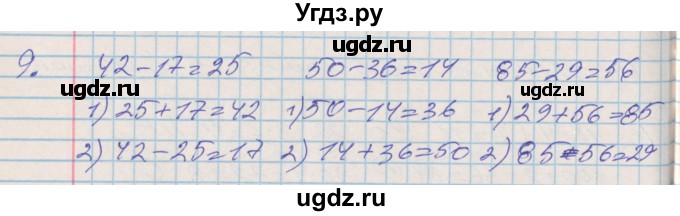 Угдз.ру
9. 42-17=25 50-36=14 85-29=56
1) 25+17=42 1) 50-14=36 1) 29+56=85
2) 42-25=17 2) 14+36=50 2) 85-56=29
ugdz.ru ugdz.ru ugdz.ru
ugdz.ru ugdz.ru ugdz.ru
ugdz.ru